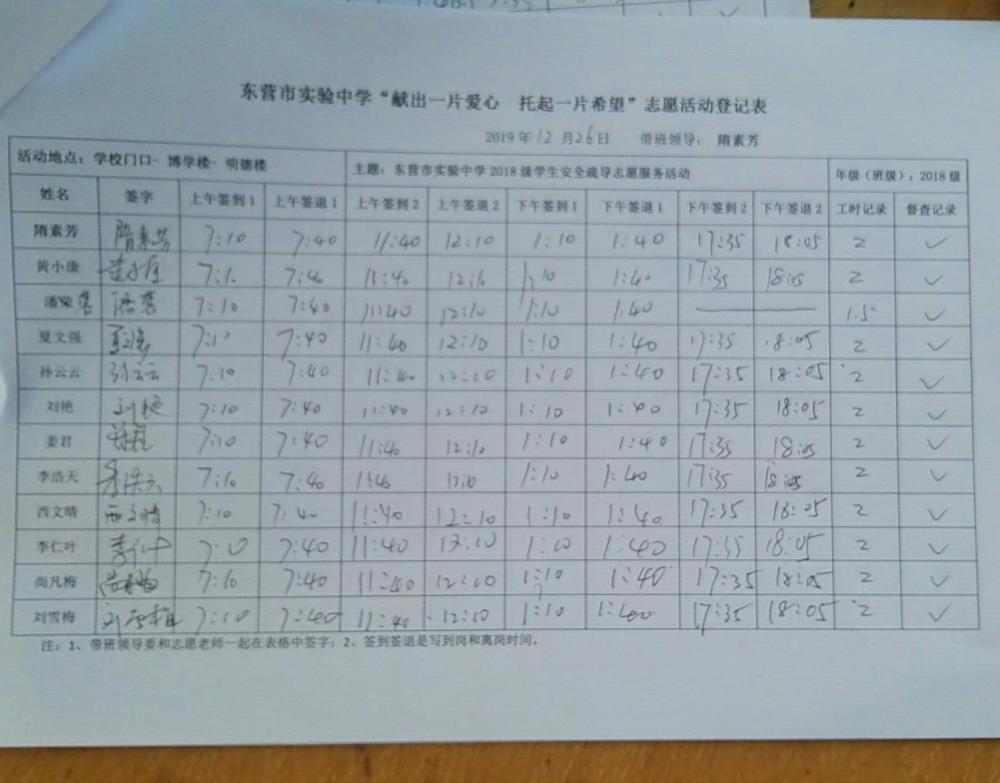 东营市实验中学“献出一片爱心 托起一片希望”志愿活动登记表
2019 年 12 月 26 日 带班领导: 隋素芳
活动地点: 学校门口- 博学楼- 明德楼 主题: 东营市实验中学 2018 级学生安全疏导志愿服务活动 年级(班级): 2018 级
姓名 签字 上午签到 1 上午签退 1 上午签到 2 上午签退 2 下午签到 1 下午签退 1 下午签到 2 下午签退 2 工时记录 督查记录
隋素芳 隋素芳 7:10 7:40 11:40 12:10 1:10 1:40 17:35 18:05 2 ✓
黄小康 7:10 7:40 11:40 12:10 1:10 1:40 17:35 18:05 2 ✓
潘 7:10 7:40 11:40 12:10 1:10 1:40 — 1.5 ✓
夏文强 7:10 7:40 11:40 12:10 1:10 1:40 17:35 18:05 2 ✓
孙云云 孙云云 7:10 7:40 11:40 12:10 1:10 1:40 17:35 18:05 2 ✓
刘艳 刘艳 7:10 7:40 11:40 12:10 1:10 1:40 17:35 18:05 2 ✓
姜君 7:10 7:40 11:40 12:10 1:10 1:40 17:35 18:05 2 ✓
李浩天 李浩天 7:10 7:40 11:40 12:10 1:10 1:40 17:35 18:05 2 ✓
西文晴 西文晴 7:10 7:40 11:40 12:10 1:10 1:40 17:35 18:05 2 ✓
李仁叶 李仁叶 7:10 7:40 11:40 12:10 1:10 1:40 17:35 18:05 2 ✓
尚凡梅 7:10 7:40 11:40 12:10 1:10 1:40 17:35 18:05 2 ✓
刘雪梅 刘雪梅 7:10 7:40 11:40 12:10 1:10 1:40 17:35 18:05 2 ✓
注: 1、带班领导要和志愿老师一起在表格中签字; 2、签到签退是写到岗和离岗时间。